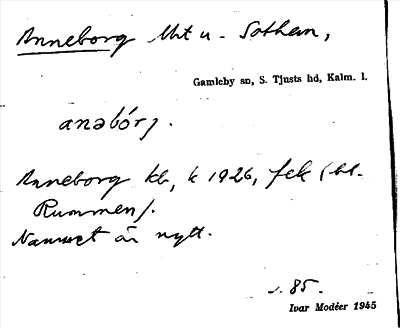 Anneborg lht u. Solhem,
Gamleby sn, S. Tjusts hd, Kalm. l.
anəbórj.
Anneborg kb, k 1926, fek (bl.
Rummen).
Namnet är nytt.
s. 85.
Ivar Modéer 1945